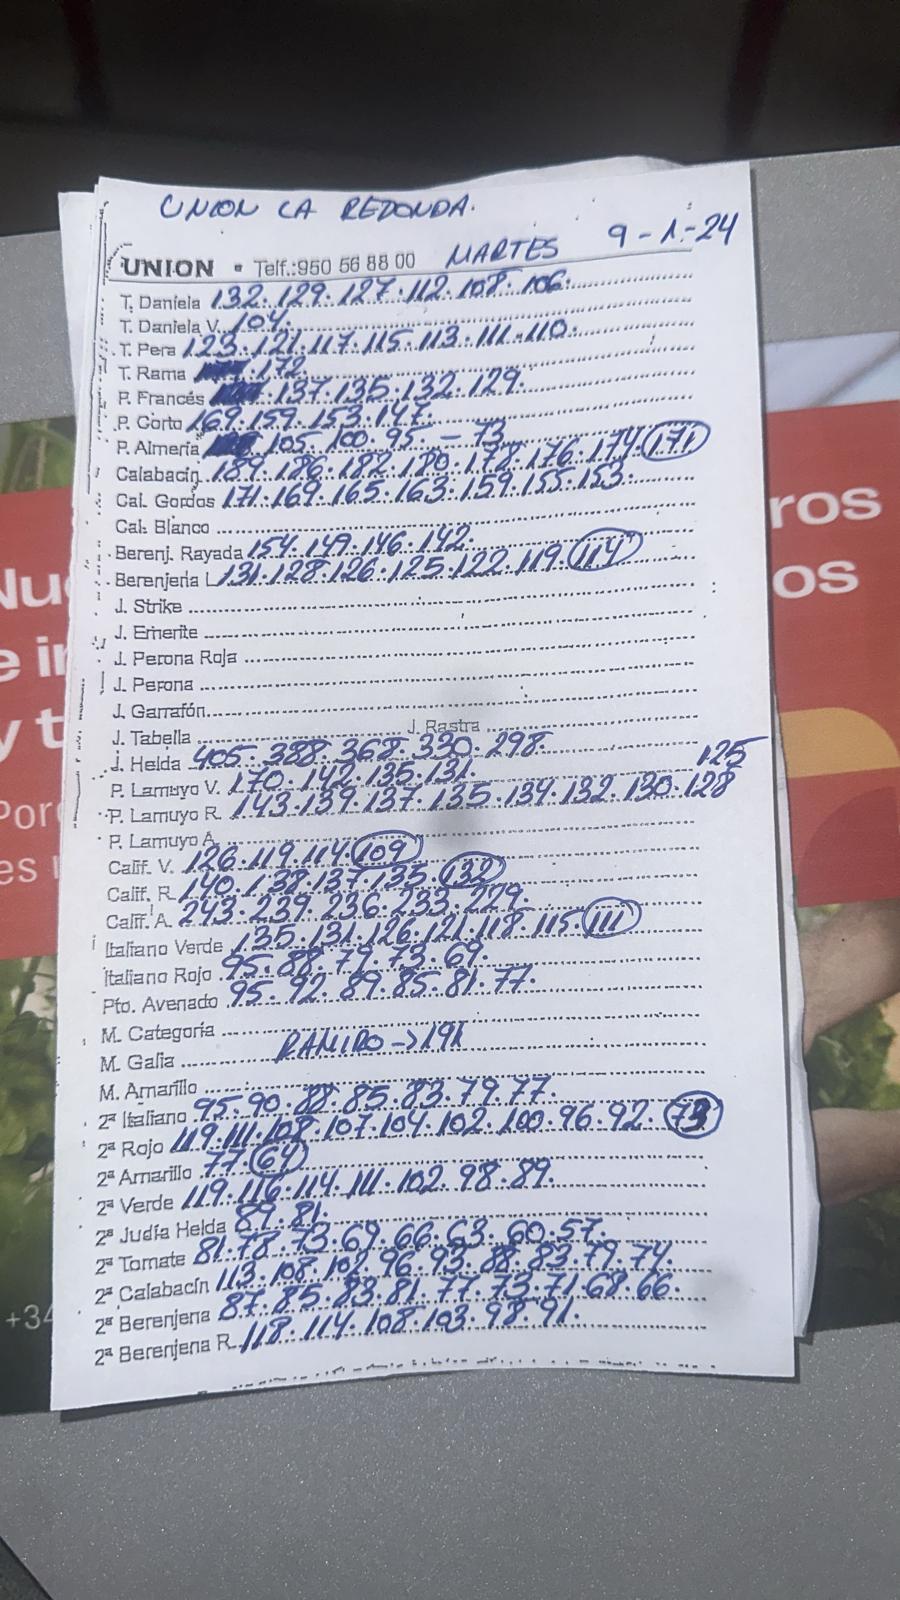 UNION LA REDONDA.
UNION • Telf.:950 56 88 00 MARTES 9-1-24
T. Daniela 132.129.127.112.108.106.
T. Daniela V. 104.
T. Pera 123.121.117.115.113.111.110.
T. Rama 172.
P. Francés 137.135.132.129.
P. Corto 169.159.153.147.
P. Almería 105.100.95.-73
Calabacín 189.186.182.180.178.176.174.171
Cal. Gordos 171.169.165.163.159.155.153.
Cal. Blanco
Berenj. Rayada 154.149.146.142.
Berenjena L 131.128.126.125.122.119.114
J. Strike
J. Emerite
J. Perona Roja
J. Perona
J. Garrafón
J. Tabella J. Rastra
J. Helda 405.388.368.330.298.
P. Lamuyo V. 170.142.135.131.
125
P. Lamuyo R. 143.139.137.135.134.132.130.128
P. Lamuyo A.
Calif. V. 126.119.114.109
Calif. R. 140.138.137.135.132
Calif. A. 243.239.236.233.229.
Italiano Verde 135.131.126.121.118.115.111
Italiano Rojo 95.88.79.73.69.
Pto. Avenado 95.92.89.85.81.77.
M. Categoría
M. Galia RAMIRO->191
M. Amarillo
2ª Italiano 95.90.88.85.83.79.77.
2ª Rojo 119.111.108.107.104.102.100.96.92.73
2ª Amarillo 77.64
2ª Verde 119.116.114.111.102.98.89.
2ª Judía Helda 89.81.
2ª Tomate 81.78.73.69.66.63.60.57.
2ª Calabacín 113.108.102.96.93.88.83.79.74.
2ª Berenjena 87.85.83.81.77.73.71.68.66.
2ª Berenjena R. 118.114.108.103.98.91.
ros
os
+34